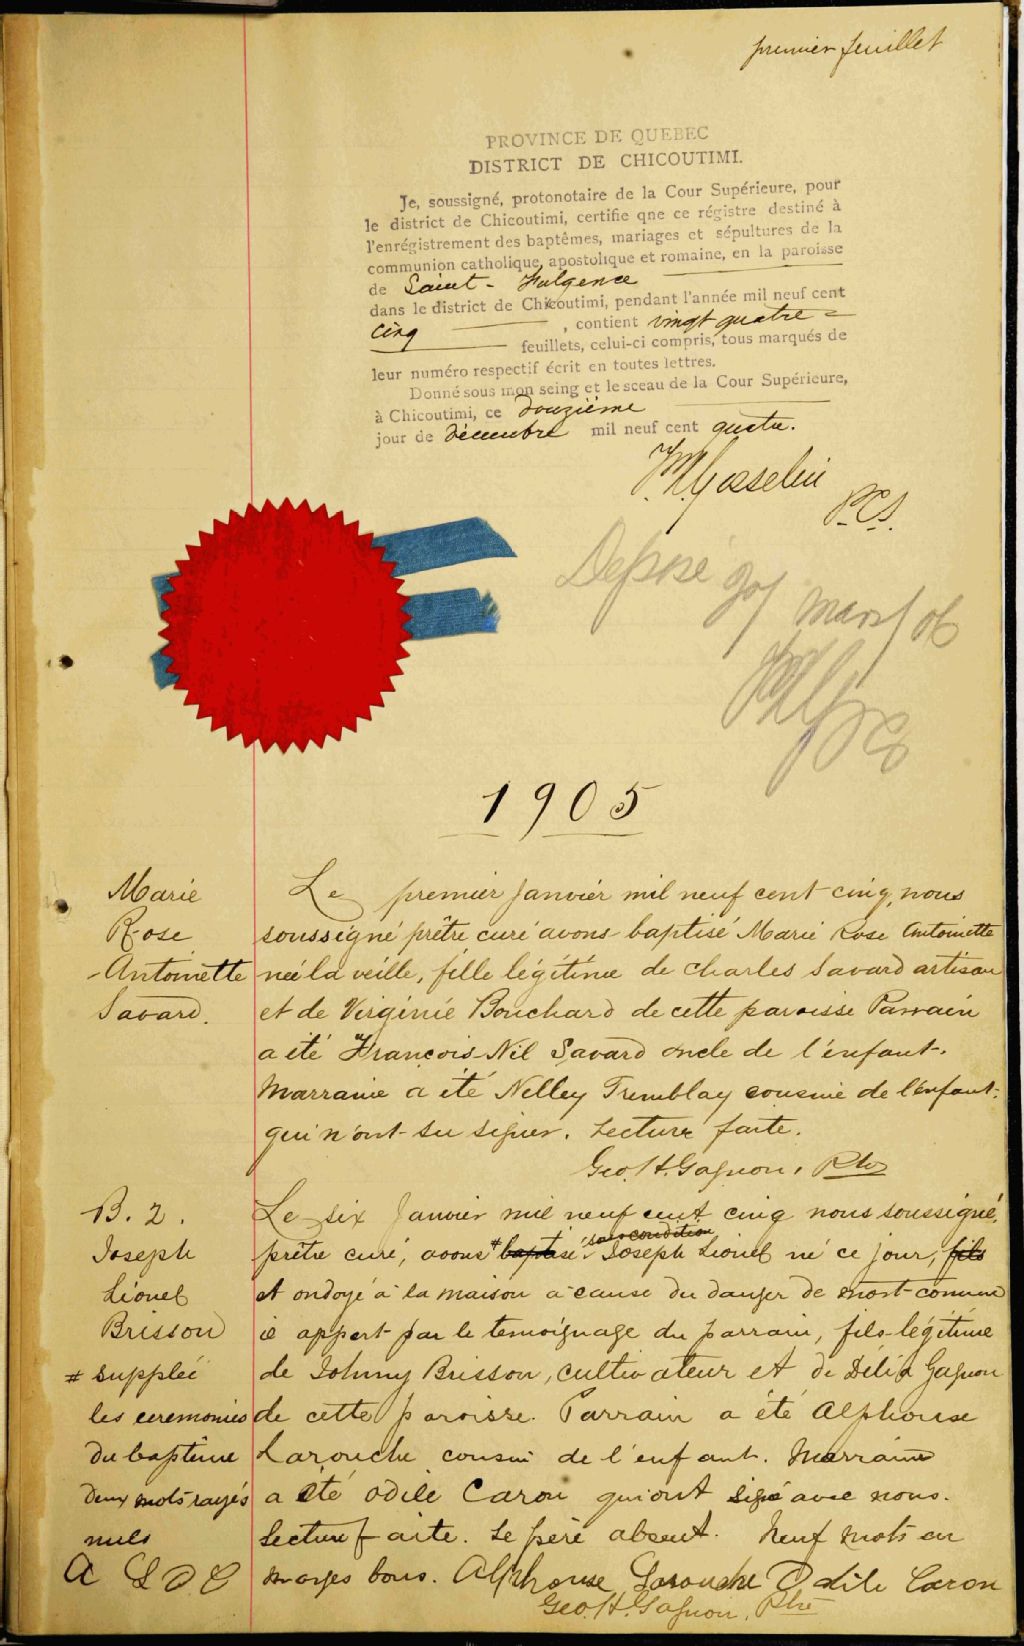 premier feuillet
PROVINCE DE QUEBEC
DISTRICT DE CHICOUTIMI.
Je, soussigné, protonotaire de la Cour Supérieure, pour
le district de Chicoutimi, certifie qne ce régistre destiné à
l'enrégistrement des baptêmes, mariages et sépultures de la
communion catholique, apostolique et romaine, en la paroisse
de Saint-Fulgence
dans le district de Chicoutimi, pendant l'année mil neuf cent
cinq, contient vingt quatre
feuillets, celui-ci compris, tous marqués de
leur numéro respectif écrit en toutes lettres.
Donné sous mon seing et le sceau de la Cour Supérieure,
à Chicoutimi, ce douzième
jour de décembre mil neuf cent quatre.
Gosselin
P.C.S.
Déposé mars 06
1905
Marie
Rose
Antoinette
Savard.
Le premier Janvier mil neuf cent cinq, nous
soussigné prêtre curé avons baptisé Marie Rose Antoinette
née la veille, fille légitime de Charles Savard artisan
et de Virginie Bouchard de cette paroisse Parrain
a été François-Nil Savard oncle de l'enfant.
Marraine a été Nelley Tremblay cousine de l'enfant.
qui n'ont su signer. Lecture faite.
Geo. H. Gagnon, Ptre
B. 2.
Joseph
Lionel
Brisson
# suppleé
les ceremonies
du baptême
Deux mots rayés
nuls
A L O C
Le six Janvier mil neuf cent cinq nous soussigné,
sous condition
prêtre curé, avons # baptisé Joseph Lionel né ce jour, fils
et ondoyé à la maison à cause du danger de mort comme
il appert par le temoignage du parrain, fils légitime
de Johnny Brisson, cultivateur et de Délia Gagnon
de cette paroisse. Parrain a été Alphonse
Larouche cousin de l'enfant. Marraine
a été Odile Caron qui ont signé avec nous.
Lecture faite. Le père absent. Neuf mots en
marges bons. Alphonse Larouche Odile Caron
Geo. H. Gagnon, Ptre